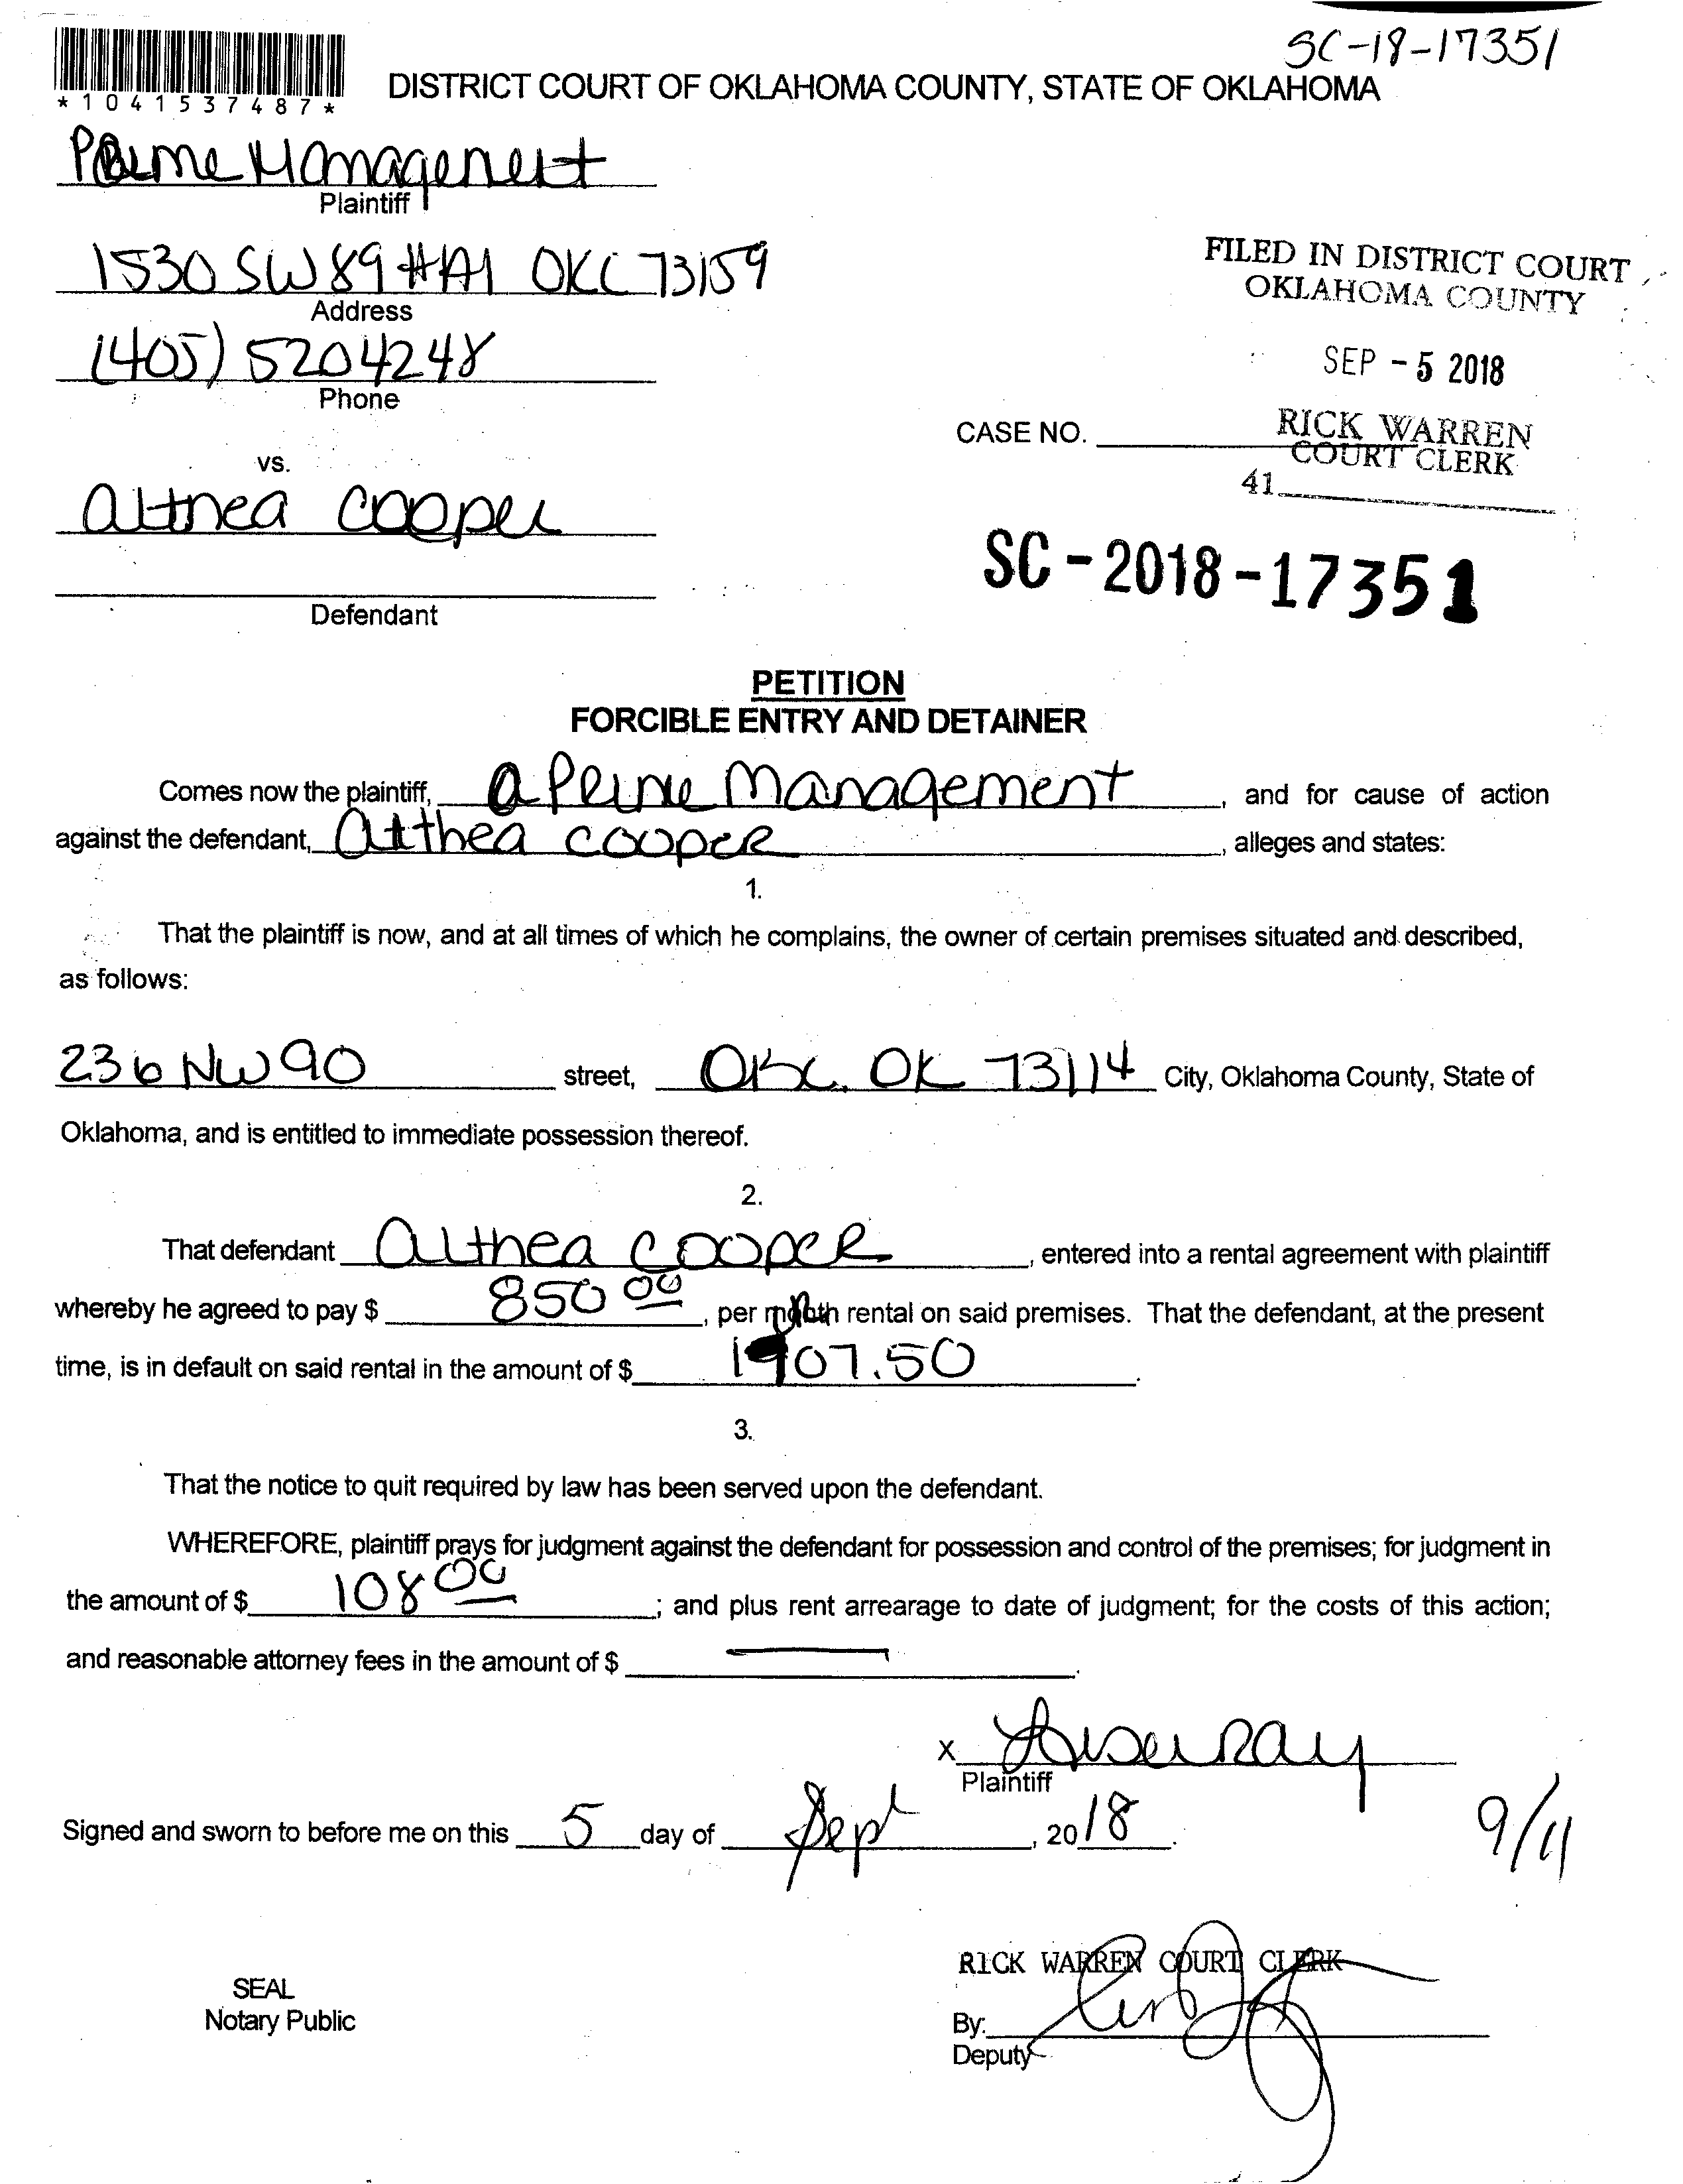 SC-18-17351
*1041537487*
DISTRICT COURT OF OKLAHOMA COUNTY, STATE OF OKLAHOMA
Prime Management
Plaintiff
1530 SW 89 #A1 OKC 73159
Address
(405) 5204248
Phone
FILED IN DISTRICT COURT
OKLAHOMA COUNTY
SEP - 5 2018
RICK WARREN
COURT CLERK
41
CASE NO.
vs.
Althea Cooper
Defendant
SC - 2018 - 17351
PETITION
FORCIBLE ENTRY AND DETAINER
Comes now the plaintiff, a Prime Management, and for cause of action
against the defendant, Althea Cooper, alleges and states:
1.
That the plaintiff is now, and at all times of which he complains, the owner of certain premises situated and described,
as follows:
236 NW 90 street, OKC. OK 73114 City, Oklahoma County, State of
Oklahoma, and is entitled to immediate possession thereof.
2.
That defendant Althea Cooper, entered into a rental agreement with plaintiff
whereby he agreed to pay $ 850 00, per month rental on said premises. That the defendant, at the present
time, is in default on said rental in the amount of $ 1907.50.
3.
That the notice to quit required by law has been served upon the defendant.
WHEREFORE, plaintiff prays for judgment against the defendant for possession and control of the premises; for judgment in
the amount of $ 108 00; and plus rent arrearage to date of judgment; for the costs of this action;
and reasonable attorney fees in the amount of $ —.
x
Plaintiff
Signed and sworn to before me on this 5 day of Sept, 2018.
9/11
RICK WARREN COURT CLERK
SEAL
Notary Public
By:
Deputy